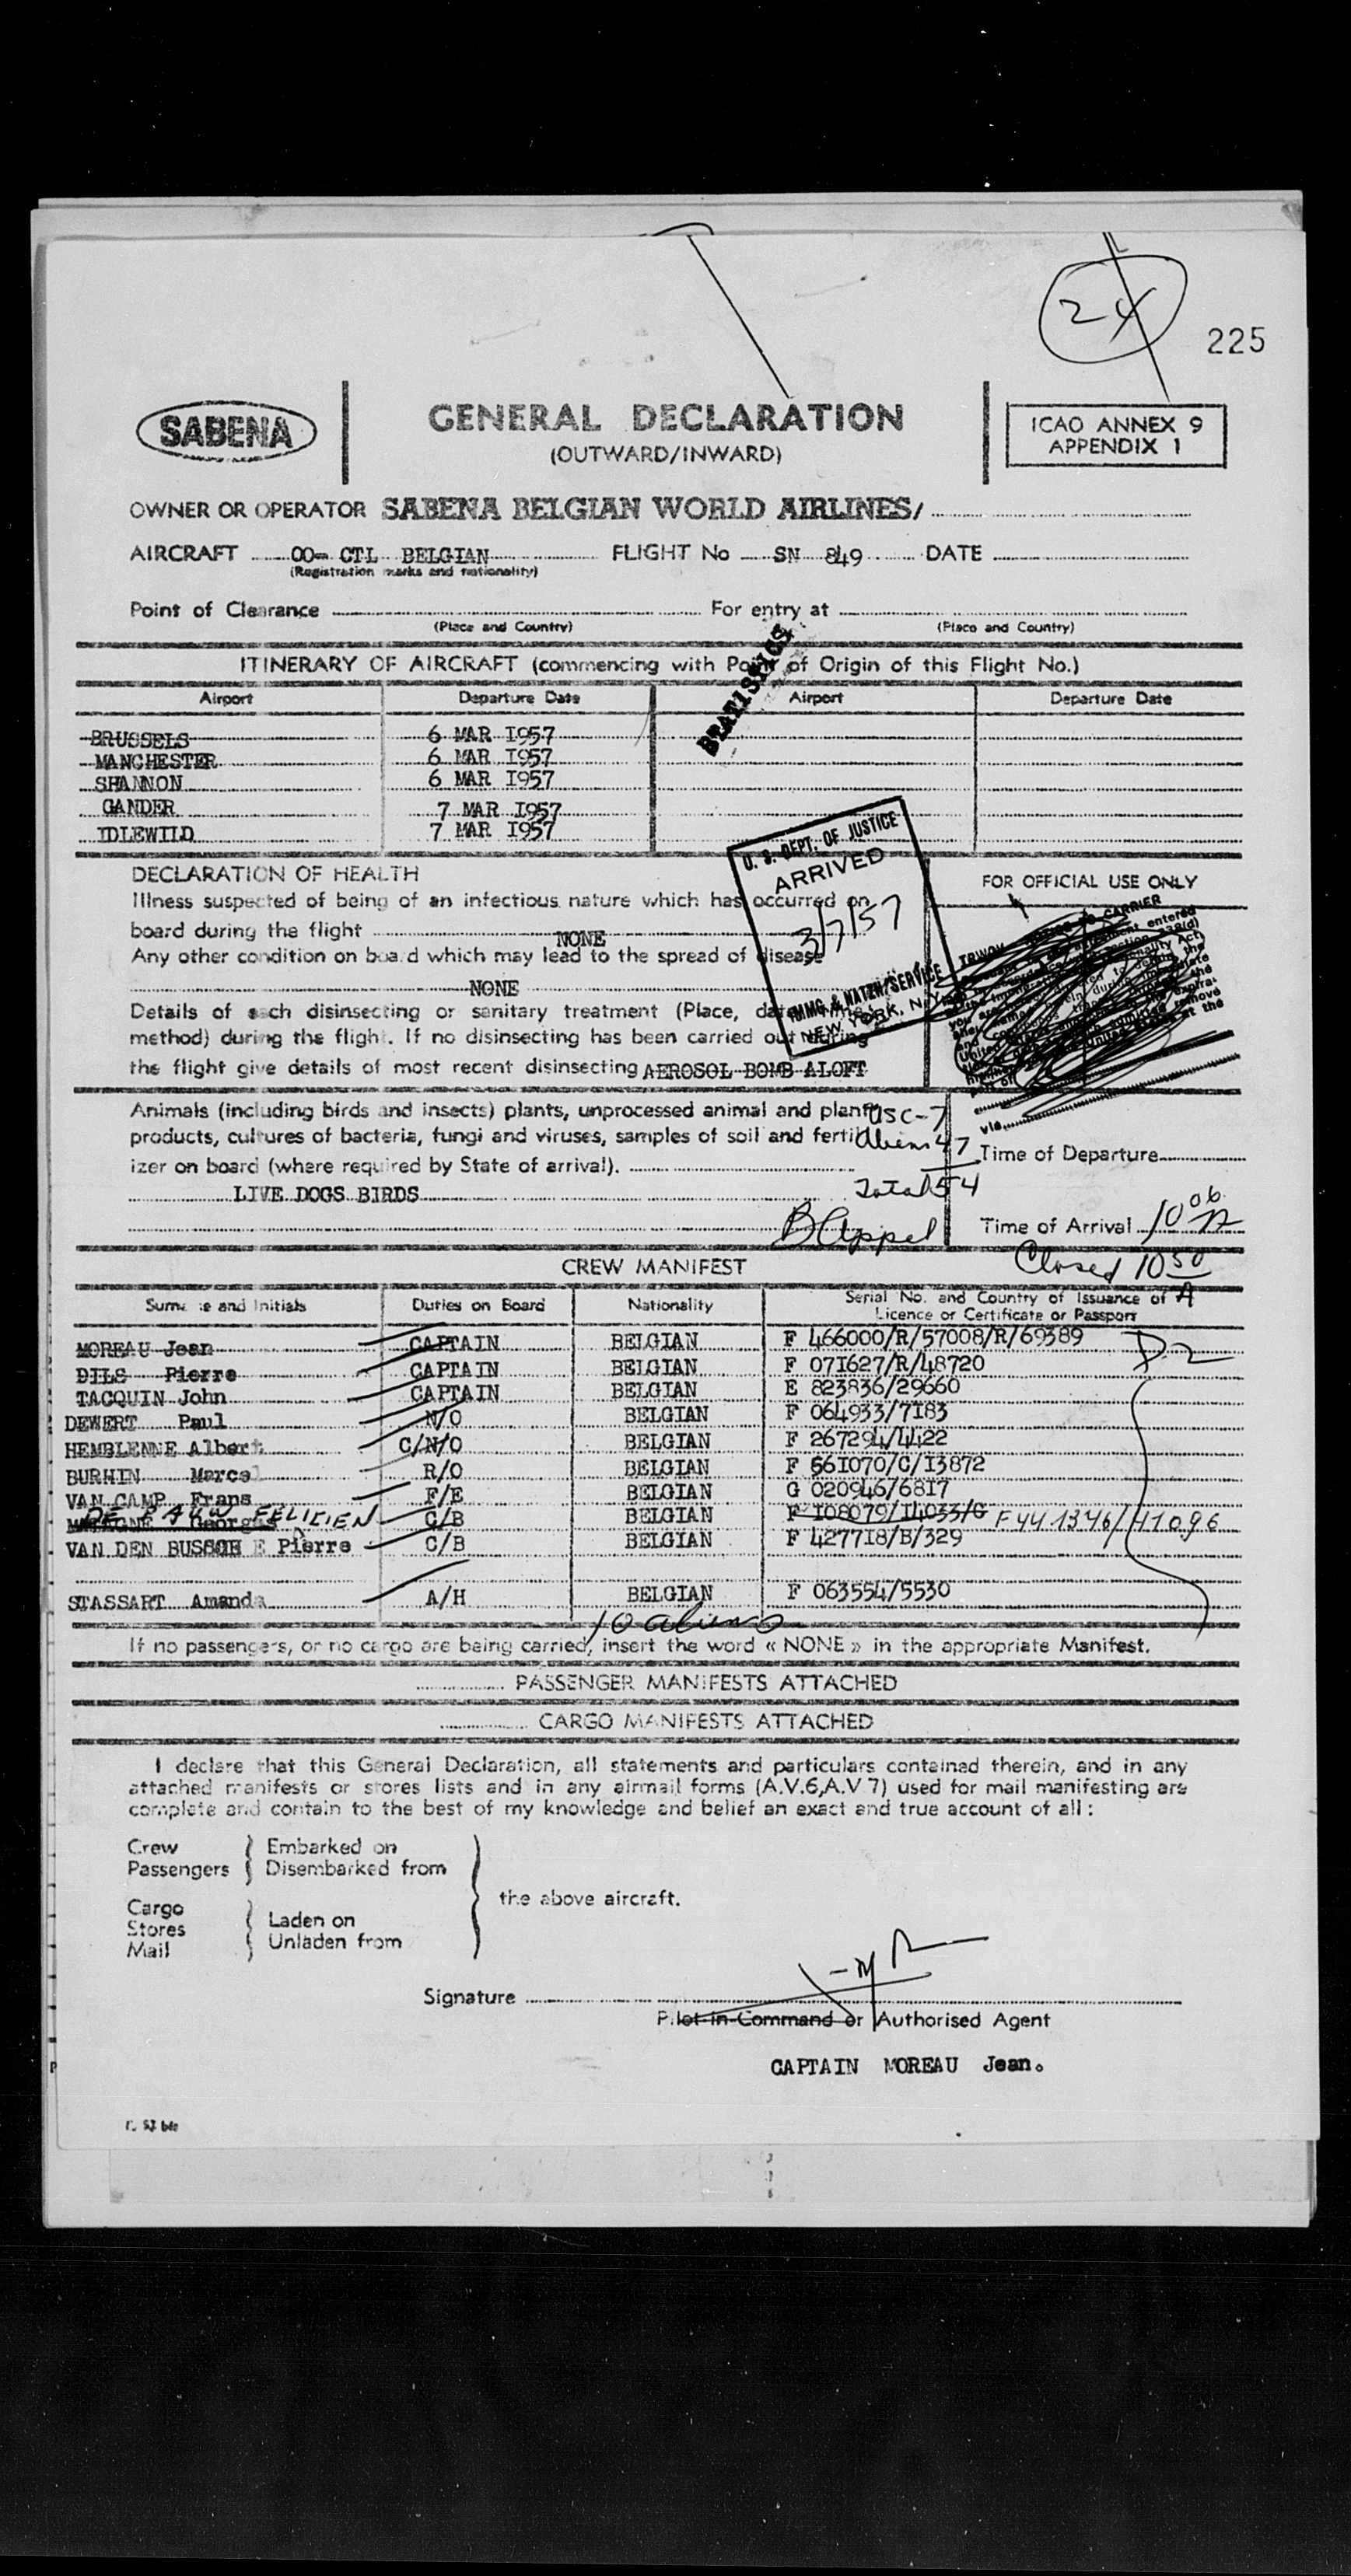 24
225
SABENA
GENERAL DECLARATION
(OUTWARD/INWARD)
ICAO ANNEX 9
APPENDIX 1
OWNER OR OPERATOR SABENA BELGIAN WORLD AIRLINES/
AIRCRAFT OO- CTL BELGIAN FLIGHT No SN 849 DATE
(Registration marks and nationality)
Point of Clearance For entry at
(Place and Country) (Place and Country)
STATISTICS
ITINERARY OF AIRCRAFT (commencing with Point of Origin of this Flight No.)
Airport Departure Date Airport Departure Date
BRUSSELS 6 MAR I957
MANCHESTER 6 MAR I957
SHANNON 6 MAR I957
GANDER 7 MAR I957
IDLEWILD 7 MAR I957
U. S. DEPT. OF JUSTICE
ARRIVED
3/7/57
IMMG. & NATZN/SERVICE
NEW YORK, N.Y.
DECLARATION OF HEALTH
Illness suspected of being of an infectious nature which has occurred on
board during the flight NONE
Any other condition on board which may lead to the spread of disease
NONE
Details of each disinsecting or sanitary treatment (Place, date,
method) during the flight. If no disinsecting has been carried out during
the flight give details of most recent disinsecting AEROSOL BOMB ALOFT
FOR OFFICIAL USE ONLY
NOTICE TO CARRIER
via
Animals (including birds and insects) plants, unprocessed animal and plant
products, cultures of bacteria, fungi and viruses, samples of soil and fertil
izer on board (where required by State of arrival).
LIVE DOGS BIRDS
USC-7
Aliens 47
Total 54
B Appel
Time of Departure
Time of Arrival 10 06 A
Closed 10 50 A
CREW MANIFEST
Surname and Initials Duties on Board Nationality Serial No. and Country of Issuance of
Licence or Certificate or Passport
MOREAU Jean CAPTAIN BELGIAN F 466000/R/57008/R/69389
DILS Pierre CAPTAIN BELGIAN F 07I627/R/48720
TACQUIN John CAPTAIN BELGIAN E 823836/29660
DEWERT Paul N/O BELGIAN F 064933/7I83
HEMBLENNE Albert C/N/O BELGIAN F 267294/4422
BURHIN Marcel R/O BELGIAN F 56I070/C/I3872
VAN CAMP Frans F/E BELGIAN G 020946/68I7
DE PAUW FELICIEN Georges C/B BELGIAN F I08079/I4033/G F441346/41096
VAN DEN BUSSCHE Pierre C/B BELGIAN F 4277I8/B/329
STASSART Amanda A/H BELGIAN F 063554/5530
D-2
10 aliens
If no passengers, or no cargo are being carried, insert the word « NONE » in the appropriate Manifest.
PASSENGER MANIFESTS ATTACHED
CARGO MANIFESTS ATTACHED
I declare that this General Declaration, all statements and particulars contained therein, and in any
attached manifests or stores lists and in any airmail forms (A.V.6,A.V 7) used for mail manifesting are
complete and contain to the best of my knowledge and belief an exact and true account of all :
Crew Embarked on
Passengers Disembarked from
the above aircraft.
Cargo
Stores Laden on
Mail Unladen from
Signature
Pilot-in-Command or Authorised Agent
CAPTAIN MOREAU Jean.